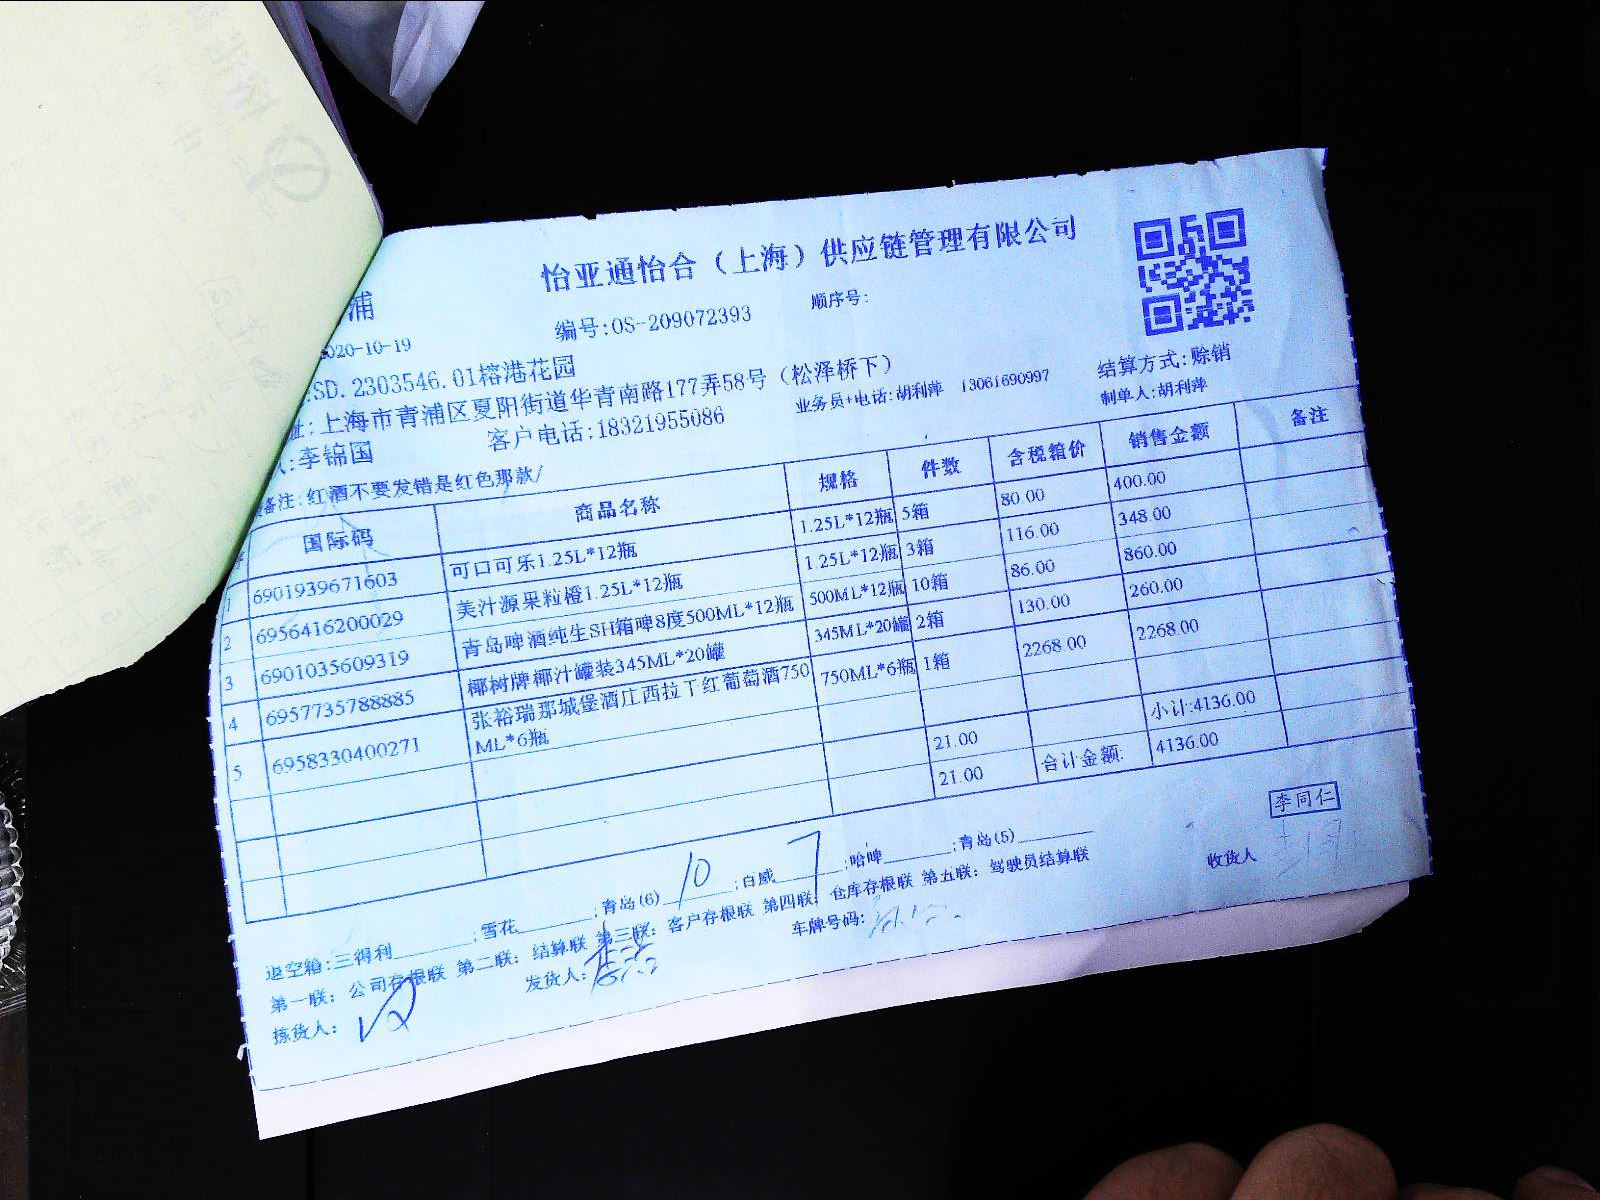 怡亚通怡合（上海）供应链管理有限公司
浦
编号:OS-209072393 顺序号:
2020-10-19
SD.2303546.01榕港花园 结算方式:赊销
址:上海市青浦区夏阳街道华青南路177弄58号（松泽桥下） 业务员+电话:胡利萍 13061690997 制单人:胡利萍
人:李锦国 客户电话:18321955086
备注:红酒不要发错是红色那款/
国际码 商品名称 规格 件数 含税箱价 销售金额 备注
1 6901939671603 可口可乐1.25L*12瓶 1.25L*12瓶 5箱 80.00 400.00
2 6956416200029 美汁源果粒橙1.25L*12瓶 1.25L*12瓶 3箱 116.00 348.00
3 6901035609319 青岛啤酒纯生SH箱啤8度500ML*12瓶 500ML*12瓶 10箱 86.00 860.00
4 6957735788885 椰树牌椰汁罐装345ML*20罐 345ML*20罐 2箱 130.00 260.00
5 6958330400271 张裕瑞那城堡酒庄西拉干红葡萄酒750 750ML*6瓶 1箱 2268.00 2268.00
ML*6瓶
21.00 小计:4136.00
21.00 合计金额: 4136.00
李同仁
退空箱:三得利 ;雪花 ;青岛(6) 10 ;百威 7 ;哈啤 ;青岛(5)
第一联: 公司存根联 第二联: 结算联 第三联: 客户存根联 第四联: 仓库存根联 第五联: 驾驶员结算联 收货人
拣货人: 发货人: 车牌号码: